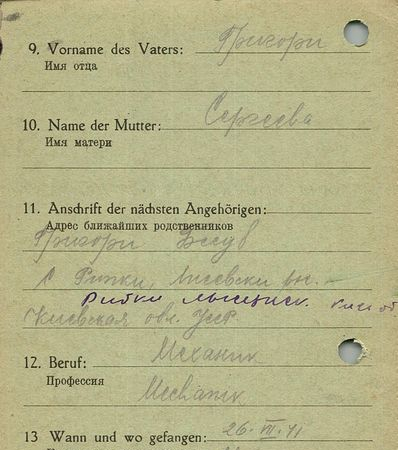 9. Vorname des Vaters: Григори
Имя отца
10. Name der Mutter: Сергеева
Имя матери
11. Anschrift der nächsten Angehörigen:
Адрес ближайших родственников
Григори
с
Рибки
Киевская обл. УССР
12. Beruf: Механик
Профессия
Mechanik
13 Wann und wo gefangen: 26. VII. 41